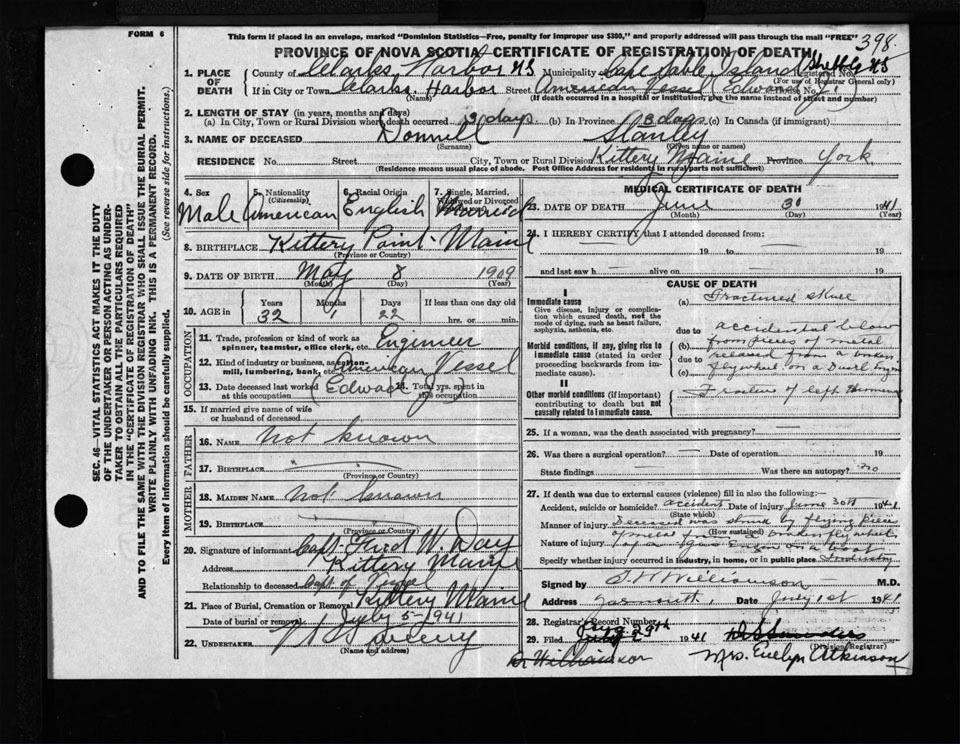 FORM 6
This form if placed in an envelope, marked "Dominion Statistics—Free, penalty for improper use $300," and properly addressed will pass through the mail "FREE"
398.
PROVINCE OF NOVA SCOTIA—CERTIFICATE OF REGISTRATION OF DEATH
1. PLACE OF DEATH
County of Clarks Harbor N.S. Municipality Cape Sable Island (Shelb Co NS
Registered No.
(For use of Registrar General only)
If in City or Town Clarks Harbor Street American Vessel (Edward J.)
(Name) (If death occurred in a hospital or institution, give the name instead of street and number)
2. LENGTH OF STAY (in years, months and days)
(a) In City, Town or Rural Division where death occurred 3 days. (b) In Province 3 days (c) In Canada (if immigrant)
3. NAME OF DECEASED Donnell Stanley
(Surname) (Given name or names)
RESIDENCE No. Street City, Town or Rural Division Kittery Maine Province York
(Residence means usual place of abode. Post Office Address for residents in rural parts not sufficient)
4. Sex Male
5. Nationality (Citizenship) American
6. Racial Origin English
7. Single, Married, Widowed or Divorced Married
8. BIRTHPLACE Kittery Point - Maine
(Province or Country)
9. DATE OF BIRTH May 8 1909
(Month) (Day) (Year)
10. AGE in Years 32 Months 1 Days 22 If less than one day old hrs. or min.
OCCUPATION
11. Trade, profession or kind of work as spinner, teamster, office clerk, etc. Engineer
12. Kind of industry or business, as cotton-mill, lumbering, bank, etc. American Vessel
13. Date deceased last worked at this occupation (Edward J. 14. Total yrs. spent in this occupation
15. If married give name of wife or husband of deceased
FATHER
16. NAME Not known
17. BIRTHPLACE "
(Province or Country)
MOTHER
18. MAIDEN NAME Not known
19. BIRTHPLACE
(Province or Country)
20. Signature of informant Capt. Fred W. Day
Address Kittery Maine
Relationship to deceased Capt. of Vessel
21. Place of Burial, Cremation or Removal Kittery Maine
Date of burial or removal July 5 - 1941
22. UNDERTAKER
(Name and address)
MEDICAL CERTIFICATE OF DEATH
23. DATE OF DEATH June 30 1941
(Month) (Day)
24. I HEREBY CERTIFY that I attended deceased from:
19 to 19
and last saw h alive on 19
CAUSE OF DEATH
I
Immediate cause
Give disease, injury or complication which caused death, not the mode of dying, such as heart failure, asphyxia, asthenia, etc.
(a) Fractured Skull
due to
Morbid conditions, if any, giving rise to immediate cause (stated in order proceeding backwards from immediate cause).
accidental blow
(b) from pieces of metal
due to released from a broken
(c) flywheel on a Diesel Engine
II
Other morbid conditions (if important) contributing to death but not causally related to immediate cause.
Fracture of left Humerus
25. If a woman, was the death associated with pregnancy?
26. Was there a surgical operation? Date of operation 19
State findings Was there an autopsy? no
27. If death was due to external causes (violence) fill in also the following:—
Accident, suicide or homicide? accident Date of injury June 30th 1941
(State which)
Manner of injury Deceased was struck by flying piece
(How sustained)
Nature of injury of metal from a broken flywheel
of a Gas Engine on a boat
Specify whether injury occurred in industry, in home, or in public place Industry
Signed by J. H. Williamson M.D.
Address Yarmouth, Date July 1st 1941
28. Registrar's Record Number
29. Filed Aug. 29th 1941
Mrs. Evelyn Atkinson
(Division Registrar)
SEC. 46—VITAL STATISTICS ACT MAKES IT THE DUTY
OF THE UNDERTAKER OR PERSON ACTING AS UNDER-
TAKER TO OBTAIN ALL THE PARTICULARS REQUIRED
IN THE "CERTIFICATE OF REGISTRATION OF DEATH"
AND TO FILE THE SAME WITH THE DIVISION REGISTRAR WHO SHALL ISSUE THE BURIAL PERMIT.
WRITE PLAINLY WITH UNFADING INK. THIS IS A PERMANENT RECORD.
Every item of Information should be carefully supplied. (See reverse side for instructions.)